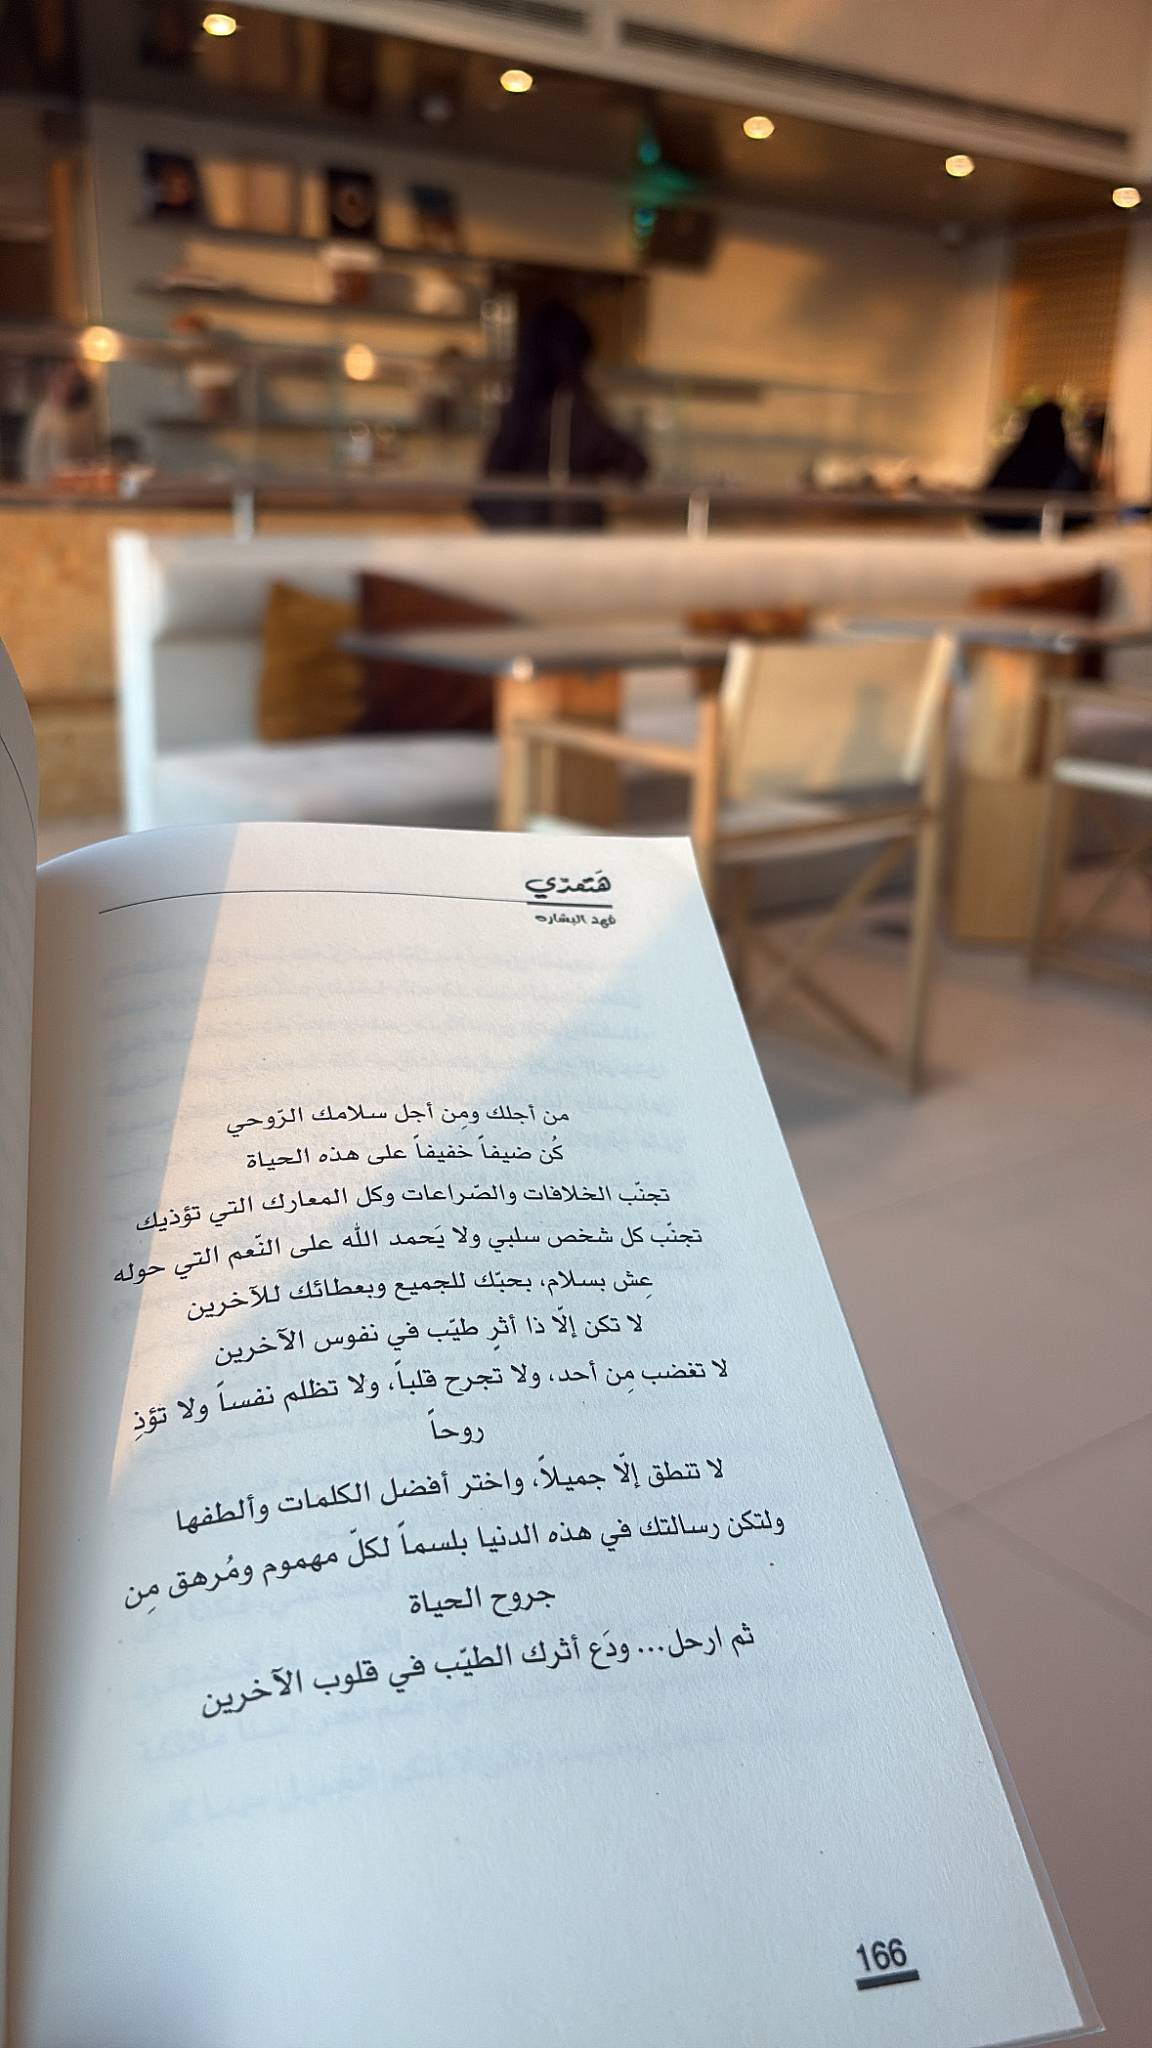 هَتعدّي
فهد البشاره
من أجلك ومِن أجل سلامك الرّوحي
كُن ضيفاً خفيفاً على هذه الحياة
تجنّب الخلافات والصّراعات وكل المعارك التي تؤذيك
تجنّب كل شخص سلبي ولا يَحمد الله على النّعم التي حوله
عِش بسلام، بحبّك للجميع وبعطائك للآخرين
لا تكن إلّا ذا أثرٍ طيّب في نفوس الآخرين
لا تغضب مِن أحد، ولا تجرح قلباً، ولا تظلم نفساً ولا تؤذِ
روحاً
لا تنطق إلّا جميلاً، واختر أفضل الكلمات وألطفها
ولتكن رسالتك في هذه الدنيا بلسماً لكلّ مهموم ومُرهق مِن
جروح الحياة
ثم ارحل... ودَع أثرك الطيّب في قلوب الآخرين
166